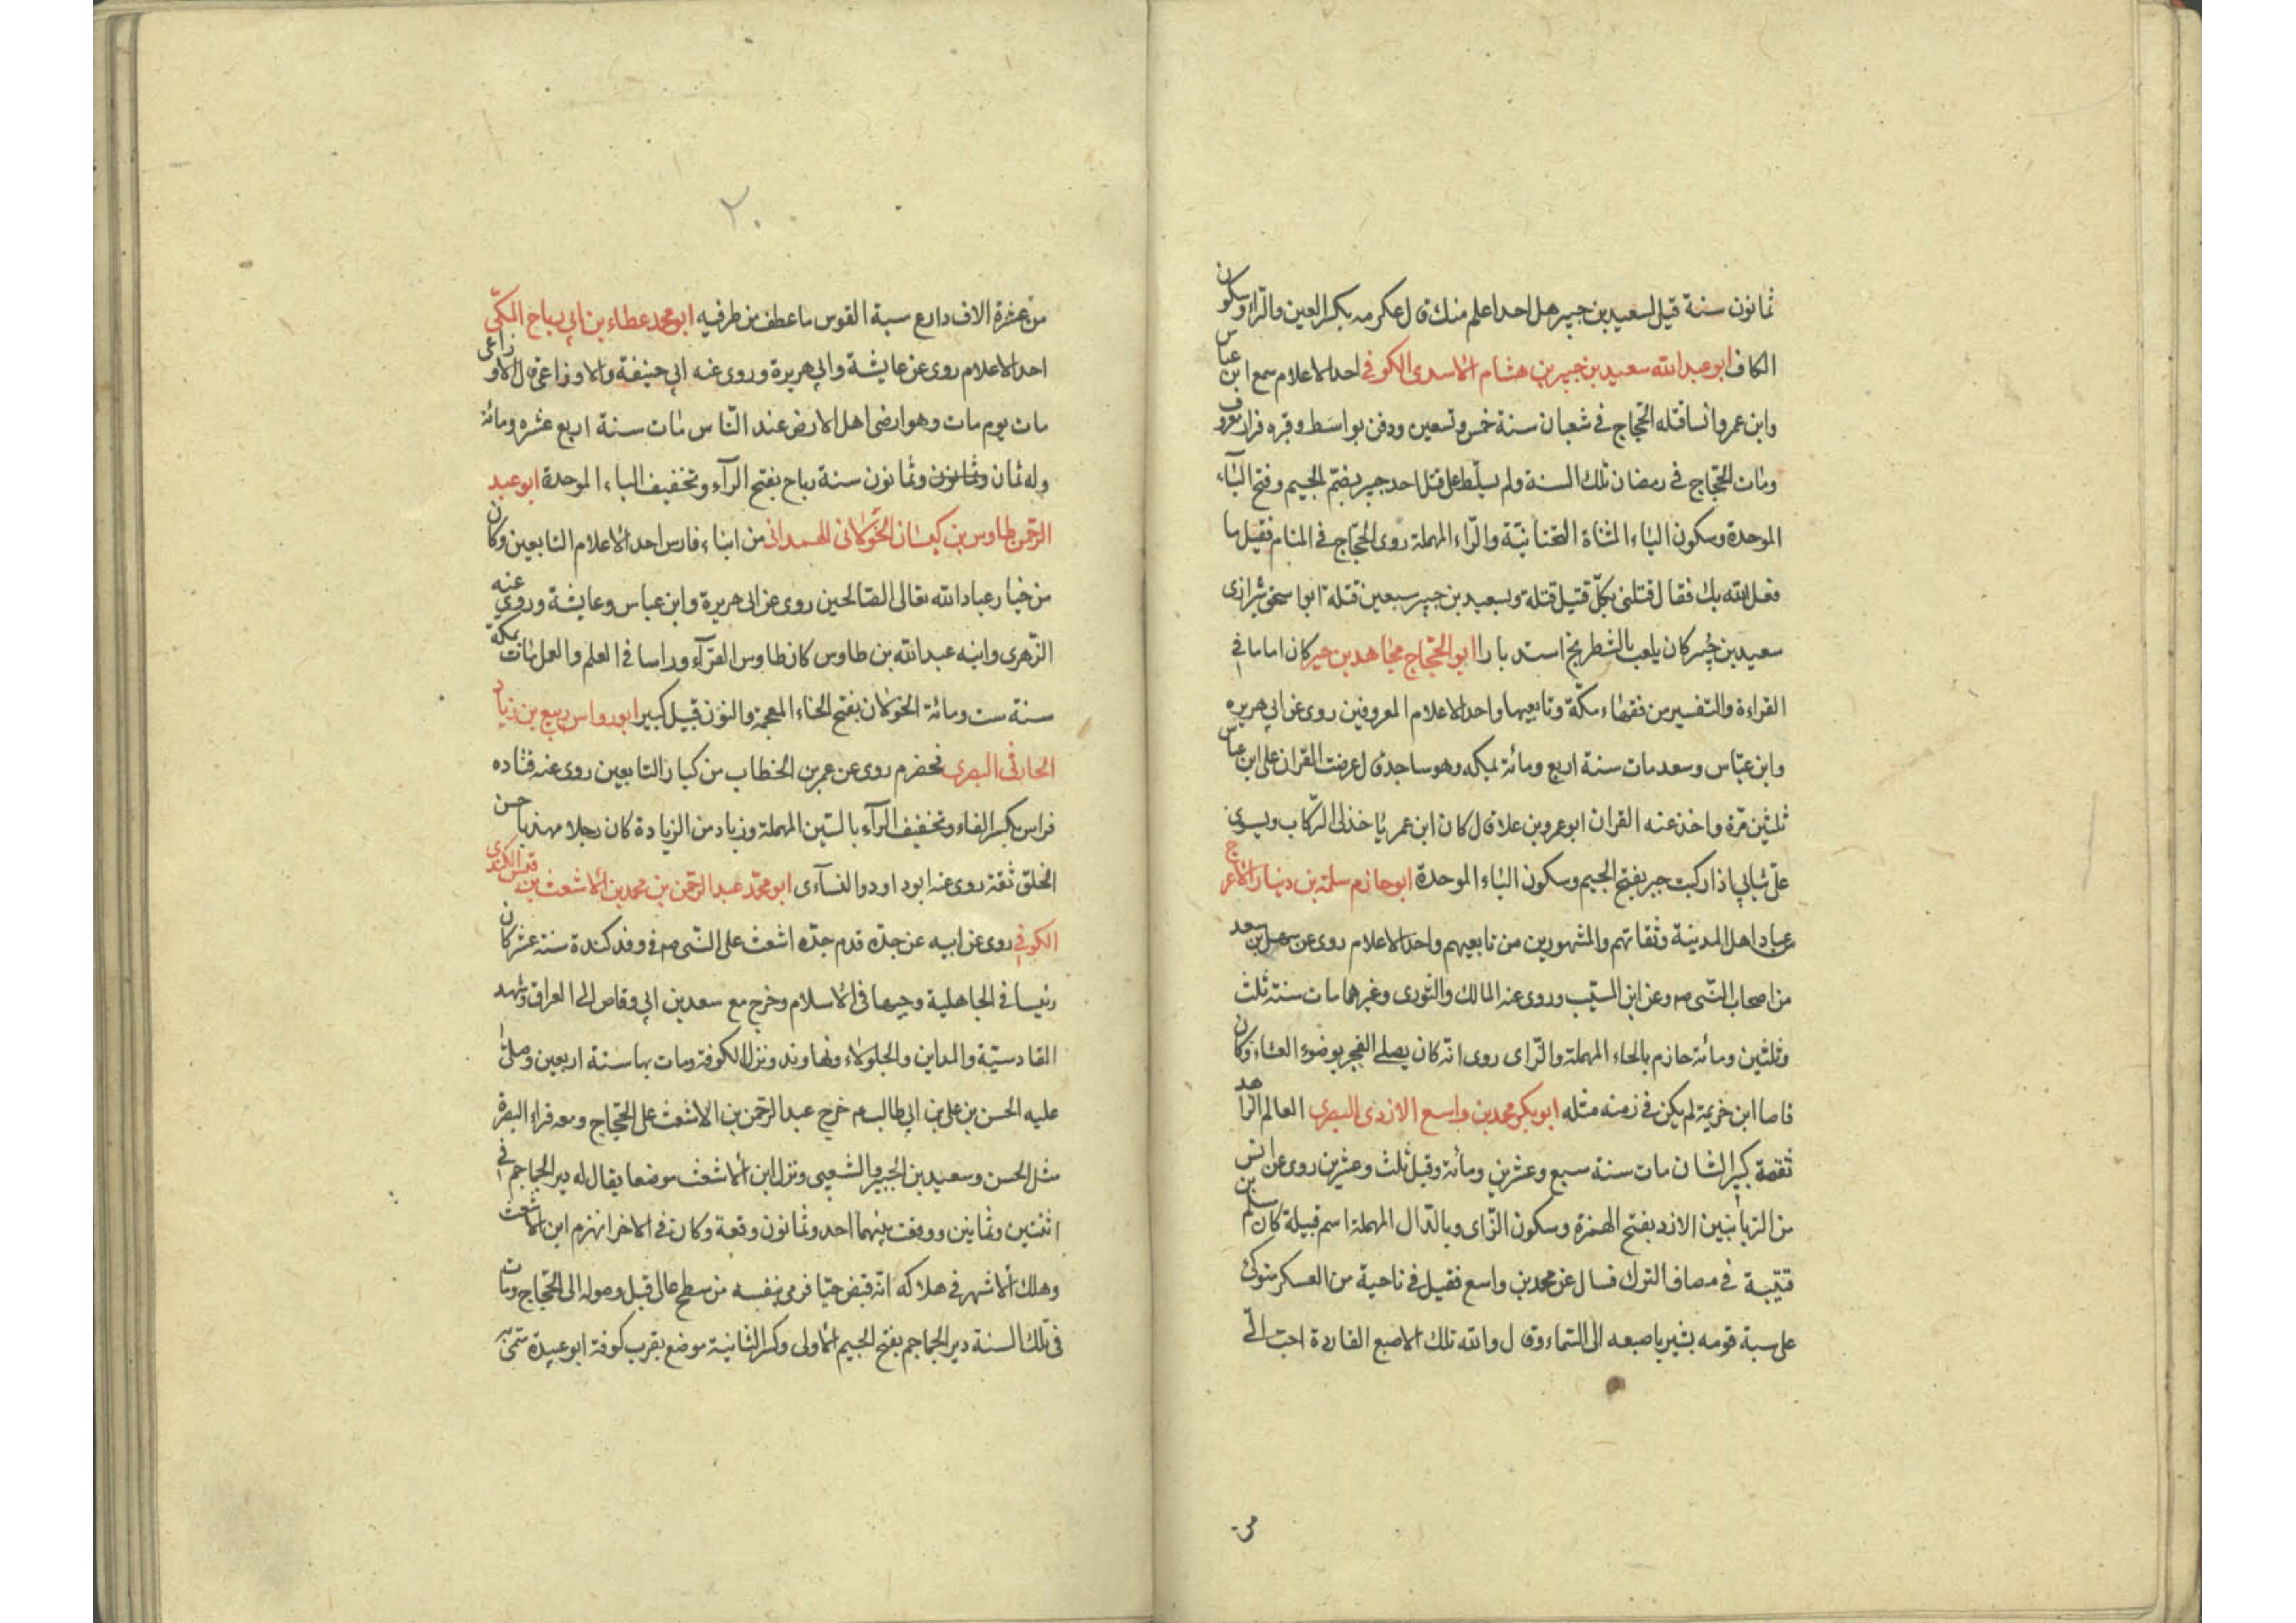 ثمانون سنة قيل لسعيد بن جبير هل احدا علم منك قال عكرمه بكسر العين والراء وسكون
الكاف ابو عبد الله سعيد بن جبير بن هشام الاسدى الكوفي احد الاعلام سمع ابن عباس
وابن عمر وانسا قتله الحجاج في شعبان سنة خمس وتسعين ودفن بواسط وقبره فزار معروف
ومات الحجاج في رمضان تلك السنة ولم يسلّط على قتل احد جبير بضم الجيم وفتح الباء
الموحدة وسكون الياء المثناة التحتانيّة والراء المهملة روى الحجاج في المنام فقيل ما
فعل الله بك فقال قتلنى بكلّ قتيل قتلة ولسعيد بن جبير سبعين قتلة ابو اسحق شيرازى
سعيد بن جبير كان يلعب بالشطرنج استدبارا ابو الحجّاج مجاهد بن جبر كان اماما في
القراءة والتفسير من فقهاء مكّة وتابعيها واحد الاعلام المعروفين روى عن ابي هريره
وابن عبّاس وسعد مات سنة اربع ومائة بمكه وهو ساجد قال عرضت القران على ابن عباس
ثلثين مرّة واخذ عنه القران ابو عمرو بن علا قال كان ابن عمر ياخذ لى الركاب ويسوى
علىّ ثيابي اذا ركبت جبر بفتح الجيم وسكون الباء الموحدة ابو حازم سلمة بن دينار الاعرج
من عباد اهل المدينة وثقاتهم والمشهورين من تابعيهم واحد الاعلام روى عن سهل بن سعد
من اصحاب النّبى ص وعن ابن المسيّب وروى عنه المالك والثورى وغيرهما مات سنة ثلث
وثلثين ومائة حازم بالحاء المهملة والزاى روى انّه كان يصلے الفجر بوضوء العشاء وكان
قاصا ابن خزيمة لم يكن في زمنه مثله ابو بكر محمد بن واسع الازدى البصرى العالم الزاهد
ثقة كبير الشان مات سنة سبع وعشرين ومائة وقيل ثلث وعشرين روى عن انس
من الربانيين الازد بفتح الهمزة وسكون الزاى وبالدال المهملة اسم قبيلة كان مسلم بن
قتيبة في مصاف الترك فسال عن محمد بن واسع فقيل في ناحية من العسكر متوكئ
على سبة قوسه يشير باصبعه الى السماء وقال والله تلك الاصبع الفاردة احبّ الىّ
من
٢٠
من عشرة الاف دارع سبة القوس ما عطف من طرفيه ابو محمد عطاء بن ابي رباح المكّى
احد الاعلام روى عن عايشة وابي هريرة وروى عنه ابي حنيفة والاوزاعى قال الاوزاعى
مات يوم مات وهو ارضى اهل الارض عند النّاس مات سنة اربع عشره ومائة
وله ثمان وثمانون وثمانون سنة رباح بفتح الرآء وتخفيف الباء الموحدة ابو عبد
الرحمن طاوس بن كيسان الخولانى الهمدانى من ابناء فارس احد الاعلام التابعين وكان
من خيار عباد الله تعالى الصالحين روى عن ابى هريرة وابن عباس وعايشة وروى عنه
الزهرى وابنه عبد الله بن طاوس كان طاوس القرّآء وراسا في العلم والعمل مات بمكة
سنة ست ومائة الخولان بفتح الخاء المعجمة والنون قبيل كبير ابو رواس ربيع بن زياد
الحارثى البصرى مخضرم روى عن عمر بن الخطاب من كبار التابعين روى عنه قتاده
فراس بكسر الفاء وتخفيف الرآء بالسّين المهملة وزياد من الزيادة كان رجلا مهذبا حسن
الخلق ثقة روى عنه ابو داود والنسآءى ابو محمّد عبد الرحمن بن محمد بن الاشعث بن قيس الكندى
الكوفي روى عن ابيه عن جدّه قدم جدّه اشعث على النّبى ص في وفد كندة سنة عشر كان
رئيسا في الجاهلية وجيها في الاسلام وخرج مع سعد بن ابي وقاص الى العراق وشهد
القادسيّة والمداين والجلولاء ونهاوند ونزل الكوفة ومات بها سنة اربعين وصلى
عليه الحسن بن على بن ابي طالب م خرج عبد الرحمن بن الاشعث على الحجّاج ومعه قراء البصرة
مثل الحسن وسعيد بن الجبير والشعبى ونزل ابن الاشعث موضعا يقال له دير الجماجم في
اثنتين وثمانين ووقعت بينهما احد وثمانون وقعة وكان في الاخر انهزم ابن الاشعث
وهلك الاشهر في هلاكه انّه قبض حيّا فرمى بنفسه من سطح عالى قبل وصوله الى الحجّاج ومات
في تلك السنة دير الجماجم بفتح الجيم الاولى وكسر الثانية موضع بقرب كوفة ابو عبيدة سمّى به